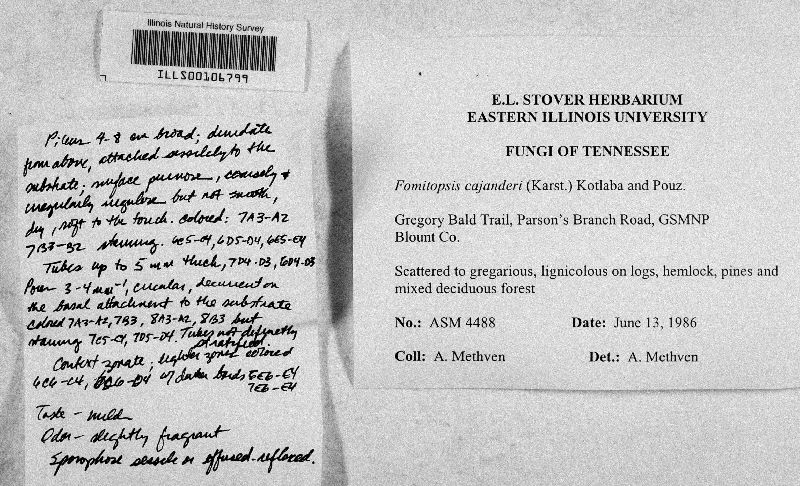 Illinois Natural History Survey
ILLS00106799
Pileus 4-8 cm broad; dimidate
from above, attached sessilely to the
substrate; surface pruinose, coarsely &
irregularly rugulose but not smooth,
dry, soft to the touch. colored: 7A3-A2
7B3-B2 staining. 6E5-E4, 6D5-D4, 6E5-E4
Tubes up to 5 mm thick, 7D4-D3, 6D4-D3
Pores 3-4 mm⁻¹, circular, decurrent on
the basal attachment to the substrate
colored 7A3-A2, 7B3, 8A3-A2, 8B3 but
staining 7C5-C4, 7D5-D4. Tubes not definetly
stratified.
Context zonate; lighter zones colored
6C6-C4, 6D6-D4 w/ darker bands 6E6-E4
7E6-E4
Taste - mild
Odor - slightly fragrant
Sporophore sessile or effused-reflexed.
E.L. STOVER HERBARIUM
EASTERN ILLINOIS UNIVERSITY
FUNGI OF TENNESSEE
Fomitopsis cajanderi (Karst.) Kotlaba and Pouz.
Gregory Bald Trail, Parson's Branch Road, GSMNP
Blount Co.
Scattered to gregarious, lignicolous on logs, hemlock, pines and
mixed deciduous forest
No.: ASM 4488 Date: June 13, 1986
Coll: A. Methven Det.: A. Methven